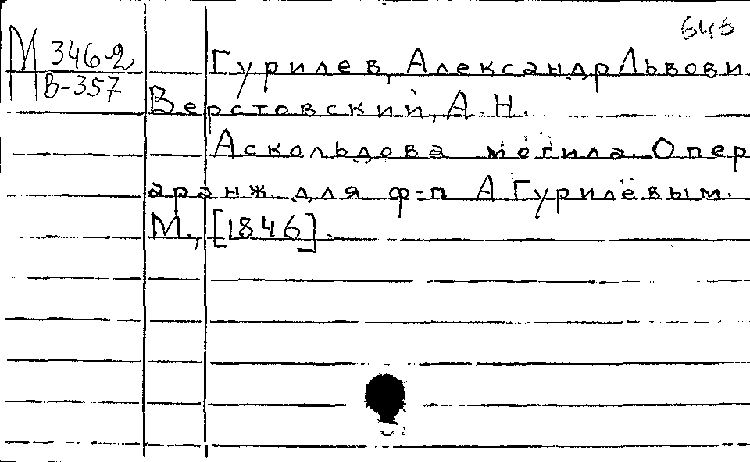 645
М 346-2
В-357
Гурилев, Александр Львови
Верстовский, А.Н.
Аскольдова могила Опер
аранж для ф-п А Гурилёвым.
М., [1846].